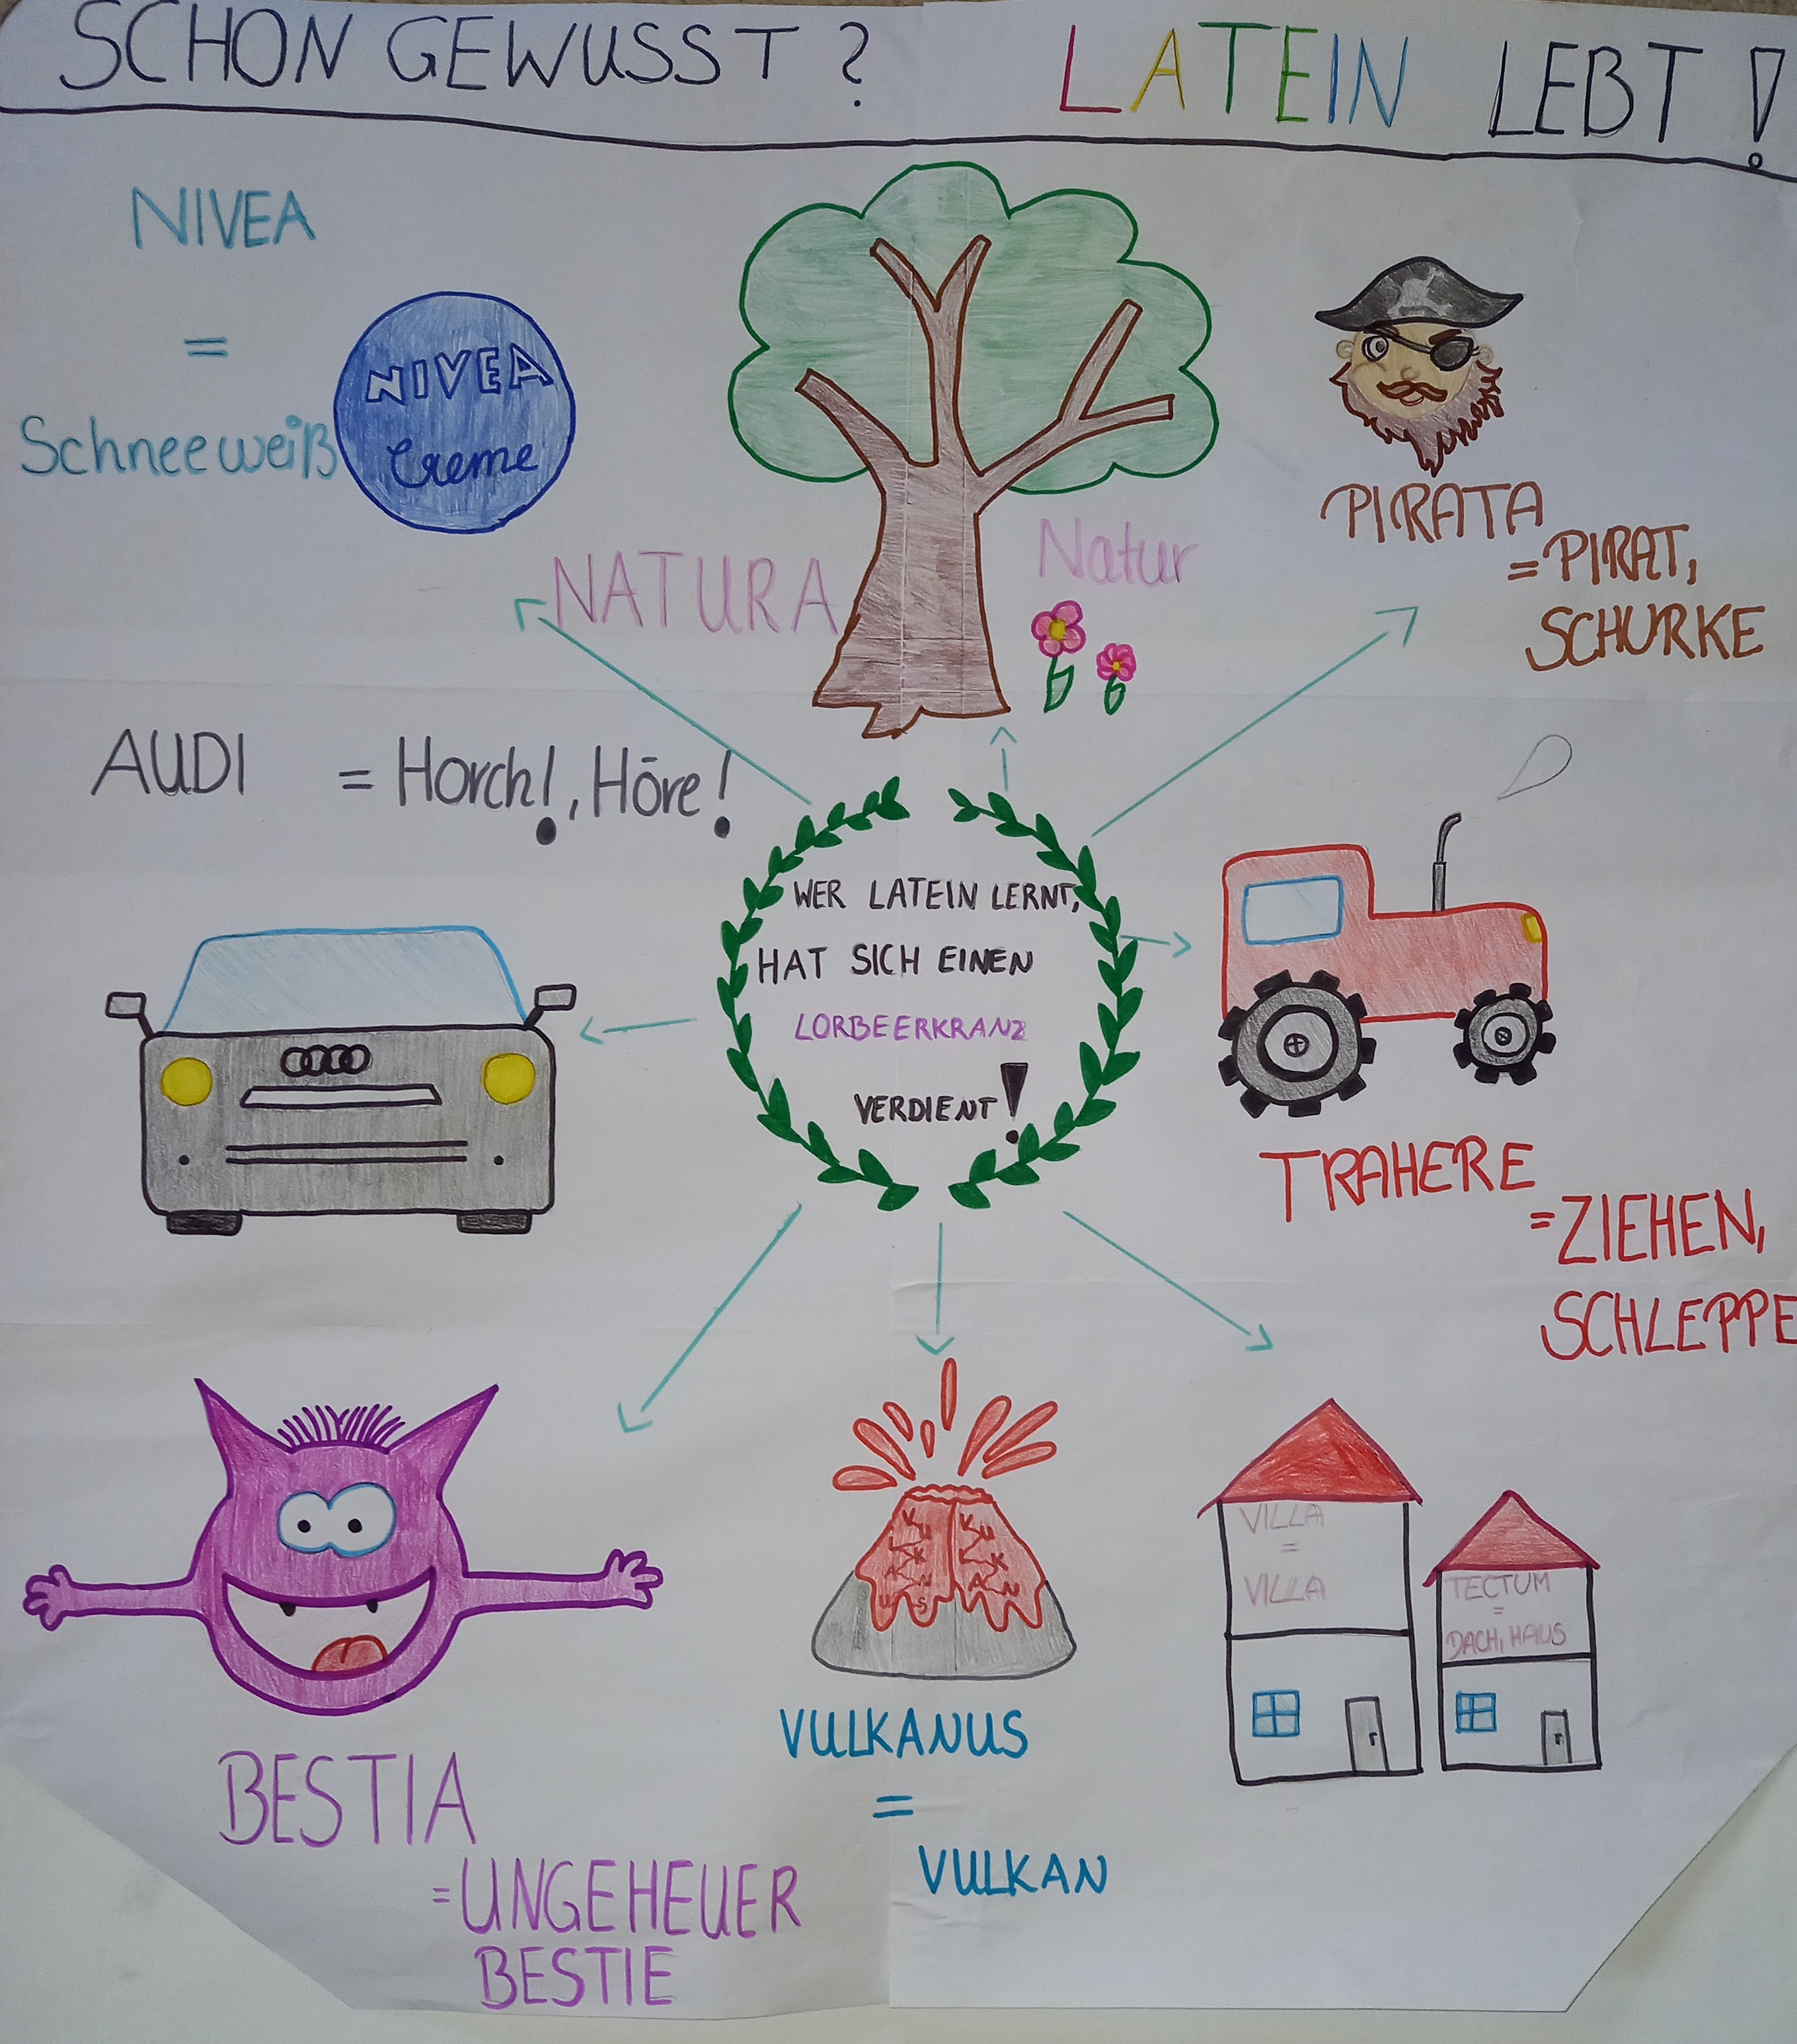 SCHON GEWUSST? LATEIN LEBT!
NIVEA
=
Schneeweiß
NIVEA
Creme
NATURA
Natur
PIRATA
= PIRAT,
SCHURKE
AUDI = Horch!, Höre!
WER LATEIN LERNT,
HAT SICH EINEN
LORBEERKRANZ
VERDIENT!
TRAHERE
= ZIEHEN,
SCHLEPPE
BESTIA
= UNGEHEUER
BESTIE
VULKANUS
VULKAN
VULKANUS
=
VULKAN
VILLA
=
VILLA
TECTUM
=
DACH, HAUS